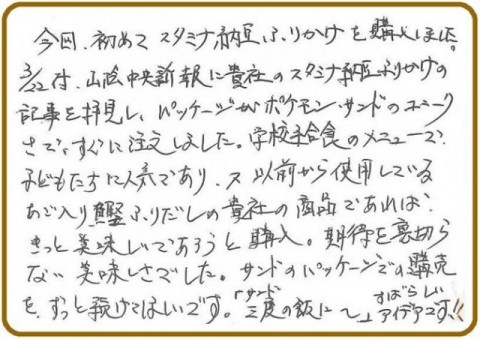 今回、初めて スタミナ納豆ふりかけ を 購入しました。
3/22付、山陰中央新報に貴社のスタミナ納豆ふりかけの
記事を拝見し、パッケージがポケモン・サンドのユニーク
さで、すぐに注文しました。学校給食のメニューで、
子どもたちに人気であり、又 以前から使用している
あご入り鰹ふりだしの貴社の商品であれば、
きっと美味しいであろうと購入。期待を裏切ら
ない 美味しさでした。サンドのパッケージでの購売
を、ずっと続けてほしいです。「三度の飯に〜」すばらしい
サンド
アイデアです!!